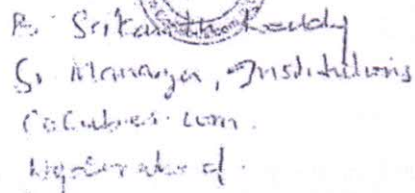 B. Srikanth Reddy
Sr Manager, Institutions
CoCubes.com.
Hyderabad.